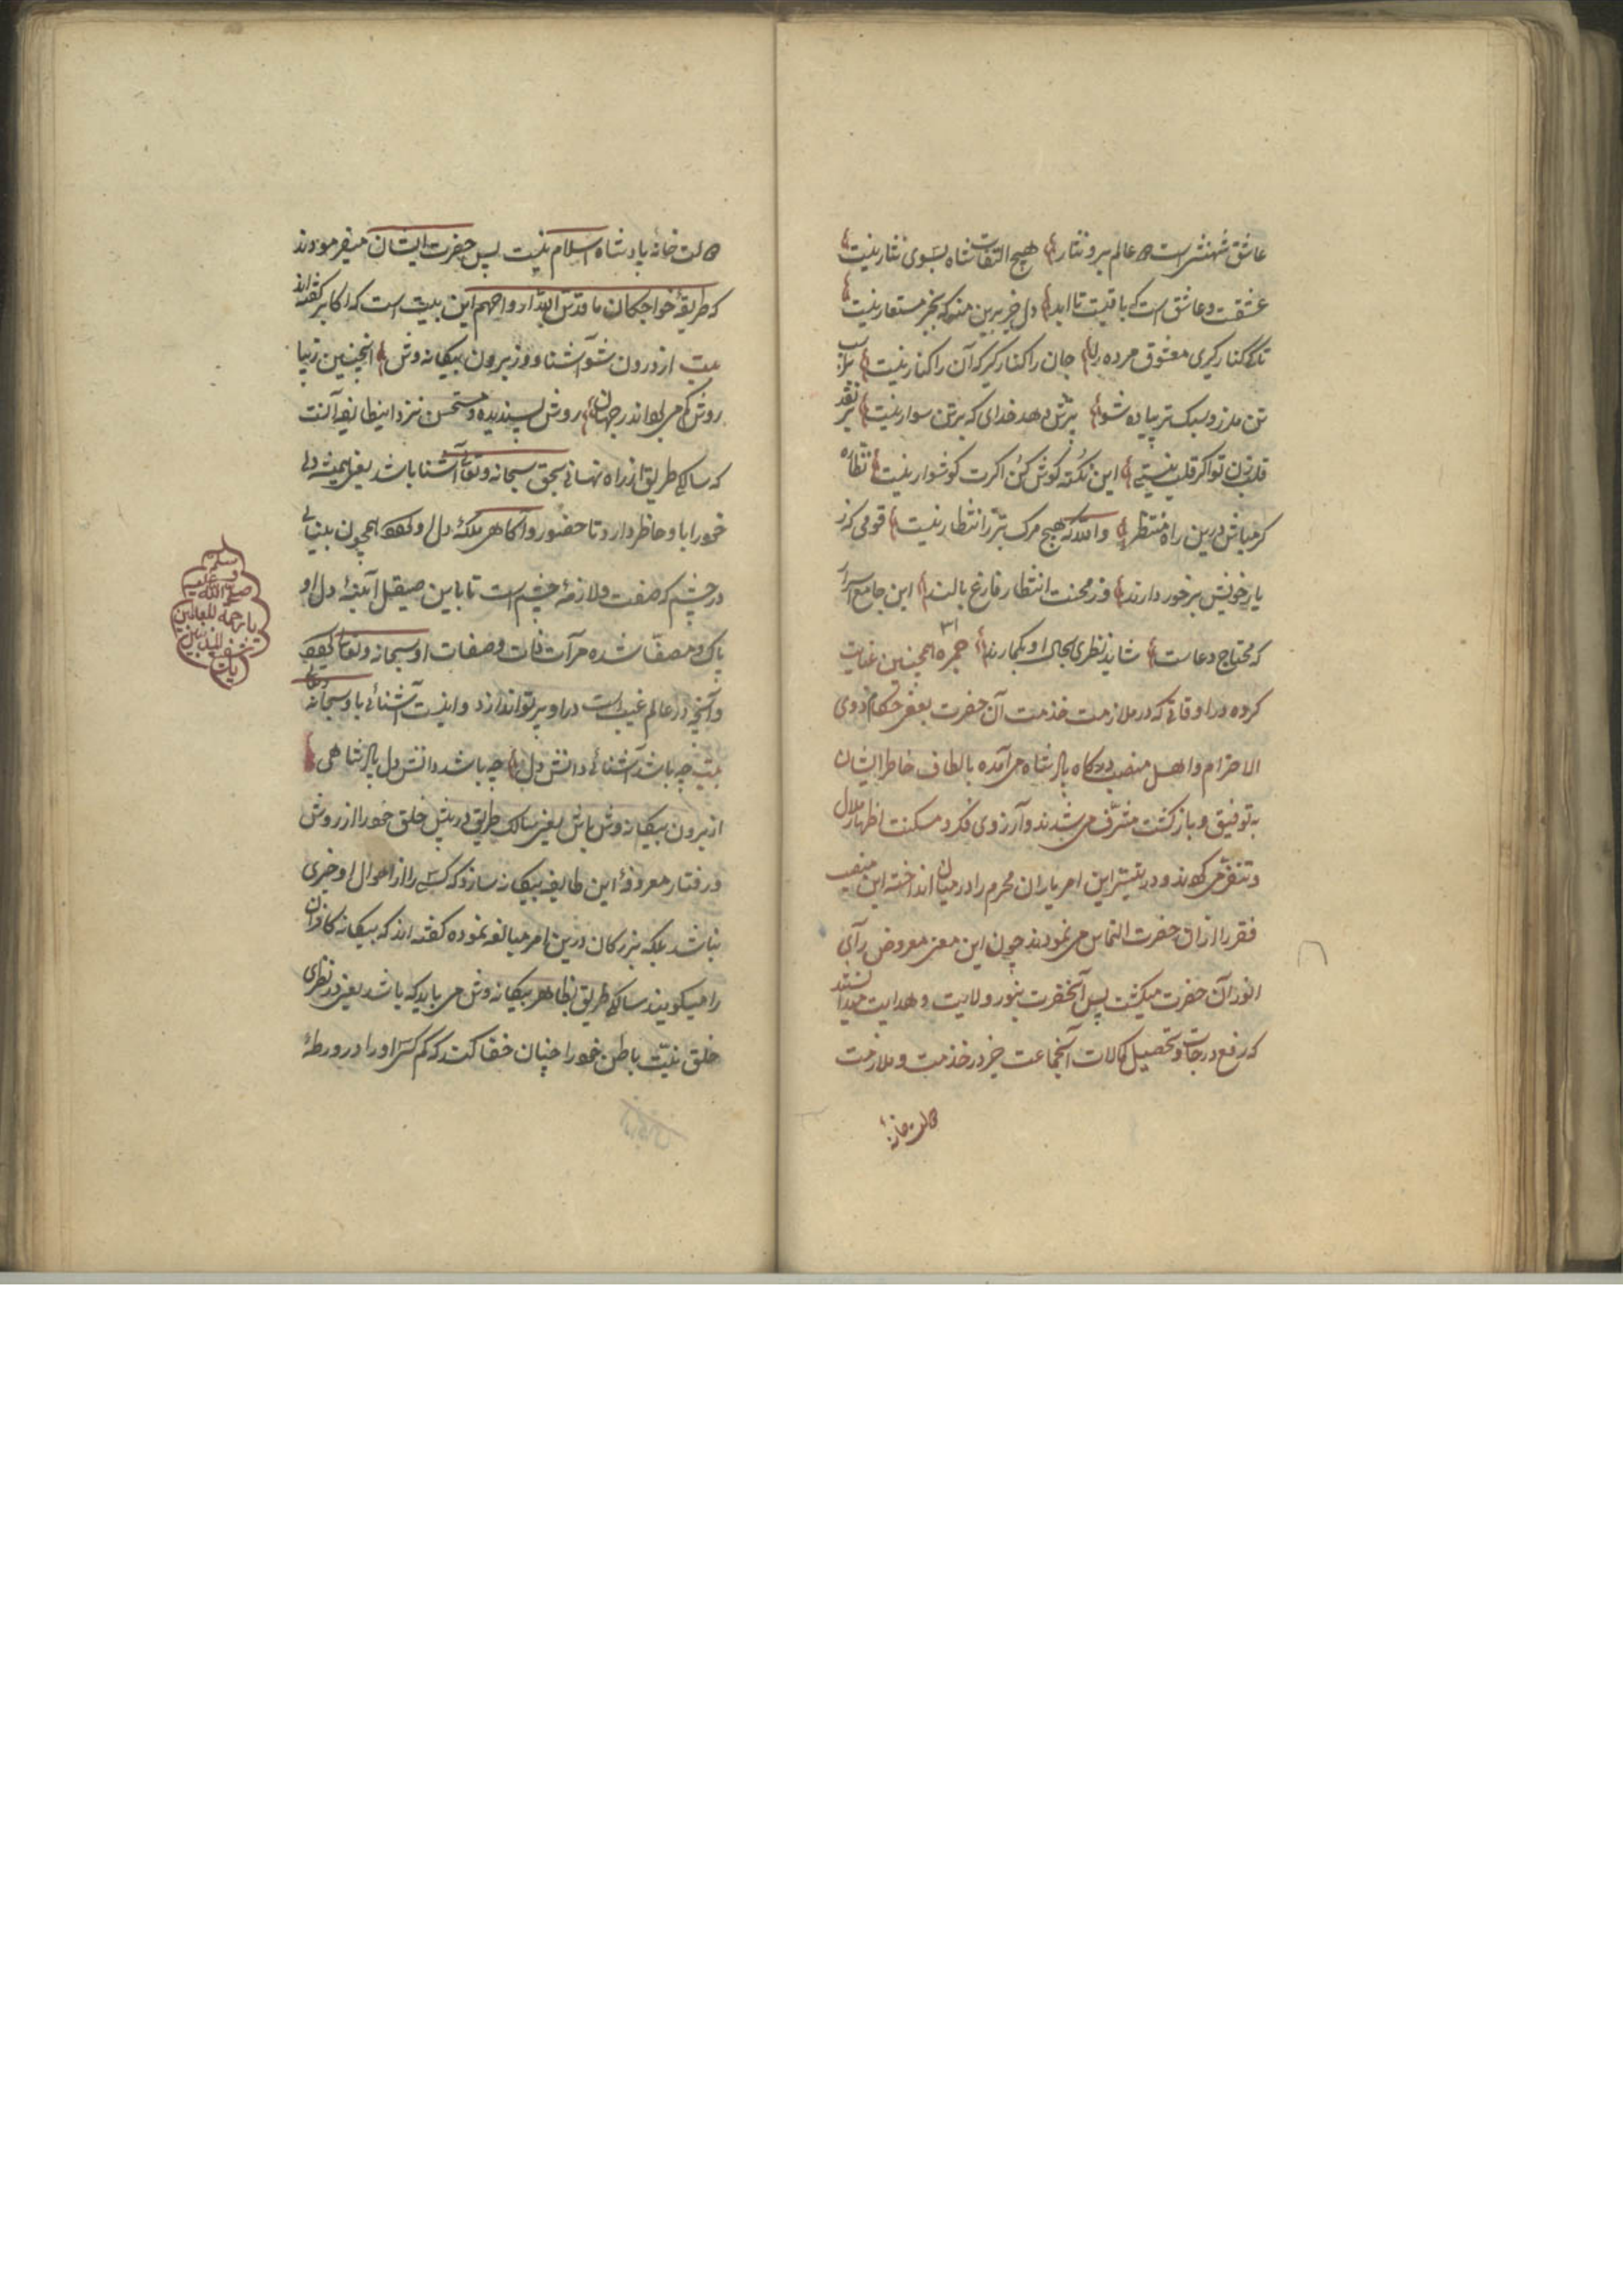 عاشق شهنشهی است و عالم برو نثار هیچ التفات شاه بسوی نثار نیست
عشقست و عاشق است که باقیست تا ابد دل جز برین منه که بجز مستعار نیست
تا کی کنار گیری معشوق مرده را جان را کنار گیر که آن را کنار نیست
تن ملرز و سبک تر پیاده شو پرش دهد خدای که بر تن سوار نیست بر نقد
قلب زن تو اگر قلب نیستی این نکته گوش کن اگرت گوشوار نیست نظاره
گر مباش درین راه منتظر والله که هیچ مرگ بتر ز انتظار نیست قومی که ز
یار خویش برخوردارند وز محنت انتظار فارغ بالند این جامع
که محتاج دعاست شاید نظری بحال او بگمارند همچنین
کرده در اوقاتی که در ملازمت خدمت آن حضرت بعضی حکام ذوی
الاحترام و اهل منصب درگاه پادشاه می آمده بالطاف خاطر ایشان
به توفیق و بازگشت مشرف می شدند و آرزوی فکر و مسکنت اظهار ملال
و تنفر می کردند و در تیسر این امر یاران محرم را در میان انداخته این منصب
فقر را از آن حضرت التماس می نمودند چون این معنی معروض رآی
انور آن حضرت میگشت پس آنحضرت بنور ولایت و هدایت میدانستند
که رفع درجات و تحصیل کمالات آنجماعت جز در خدمت و ملازمت
خانه پادشاه اسلام نیست پس حضرت ایشان میفرمودند
که طریقه خواجکان ما قدس الله ارواحهم این بیت است که اکابر گفته اند
بیت از درون شو آشنا و وز برون بیگانه وش اینچنین زیبا
روش کم می بود اندر جهان روش پسندیده و مستحسن نزد اینطایفه آنست
که سالک طریق از راه نهانی بحق سبحانه و تعالی آشنا باشد یعنی همیشه دل
خود را با و حاضر دارد تا حضور و آگاهی ملکه دل او گردد همچون بینایی
در چشم که صفت و لازمه چشم است تا باین صیقل آئینه دل او
پاک و مصفا شده مرآت ذات و صفات او سبحانه و تعالی گردد
و آنچه در عالم غیب است در او پرتو اندازد و اینست آشنائی با و سبحانه وتعالی
بیت چه باشد آشنائی دانش دل چه باشد دانش دل پادشاهی
از برون بیگانه وش باش یعنی سالک طریق در پیش خلق خود را از روش
و رفتار معروفه این طایفه بیگانه سازد که کسی را از احوال او خبری
نباشد بلکه بزرگان درین امر مبالغه نموده گفته اند که بیگانه کافران
را میگویند سالک طریق بظاهر بیگانه وش می باید که باشد یعنی در نظری
خلق نیت باطن خود را چنان خفا کند که کم کسی او را در ورطه
وسلم
صلی الله علیه
یا رحمة للعالمین
شفیع المذنبین